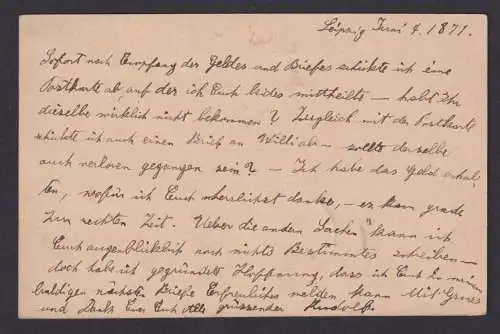 Leipzig Juni 4. 1871.
Sofort nach Empfang der Geldes und Briefes schickte ich eine
Postkarte ab, auf der ich Euch beides mittheilte — habt Ihr
dieselbe wirklich nicht bekommen? Zugleich mit der Postkarte
schickte ich auch einen Brief an Willi ab — sollte derselbe
auch verloren gegangen sein? — Ich habe das Geld erhal-
ten, wofür ich Euch herzlichst danke, — es kam grade
zur rechten Zeit. Ueber die andern Sachen kann ich
Euch augenblicklich noch nichts Bestimmtes schreiben —
doch habe ich gegründete Hoffnung, dass ich Euch in meinem
baldigen nächsten Briefe Erfreuliches melden kann. Mit Gruss
und Dank Euer Euch alle grüssender Rudolf.